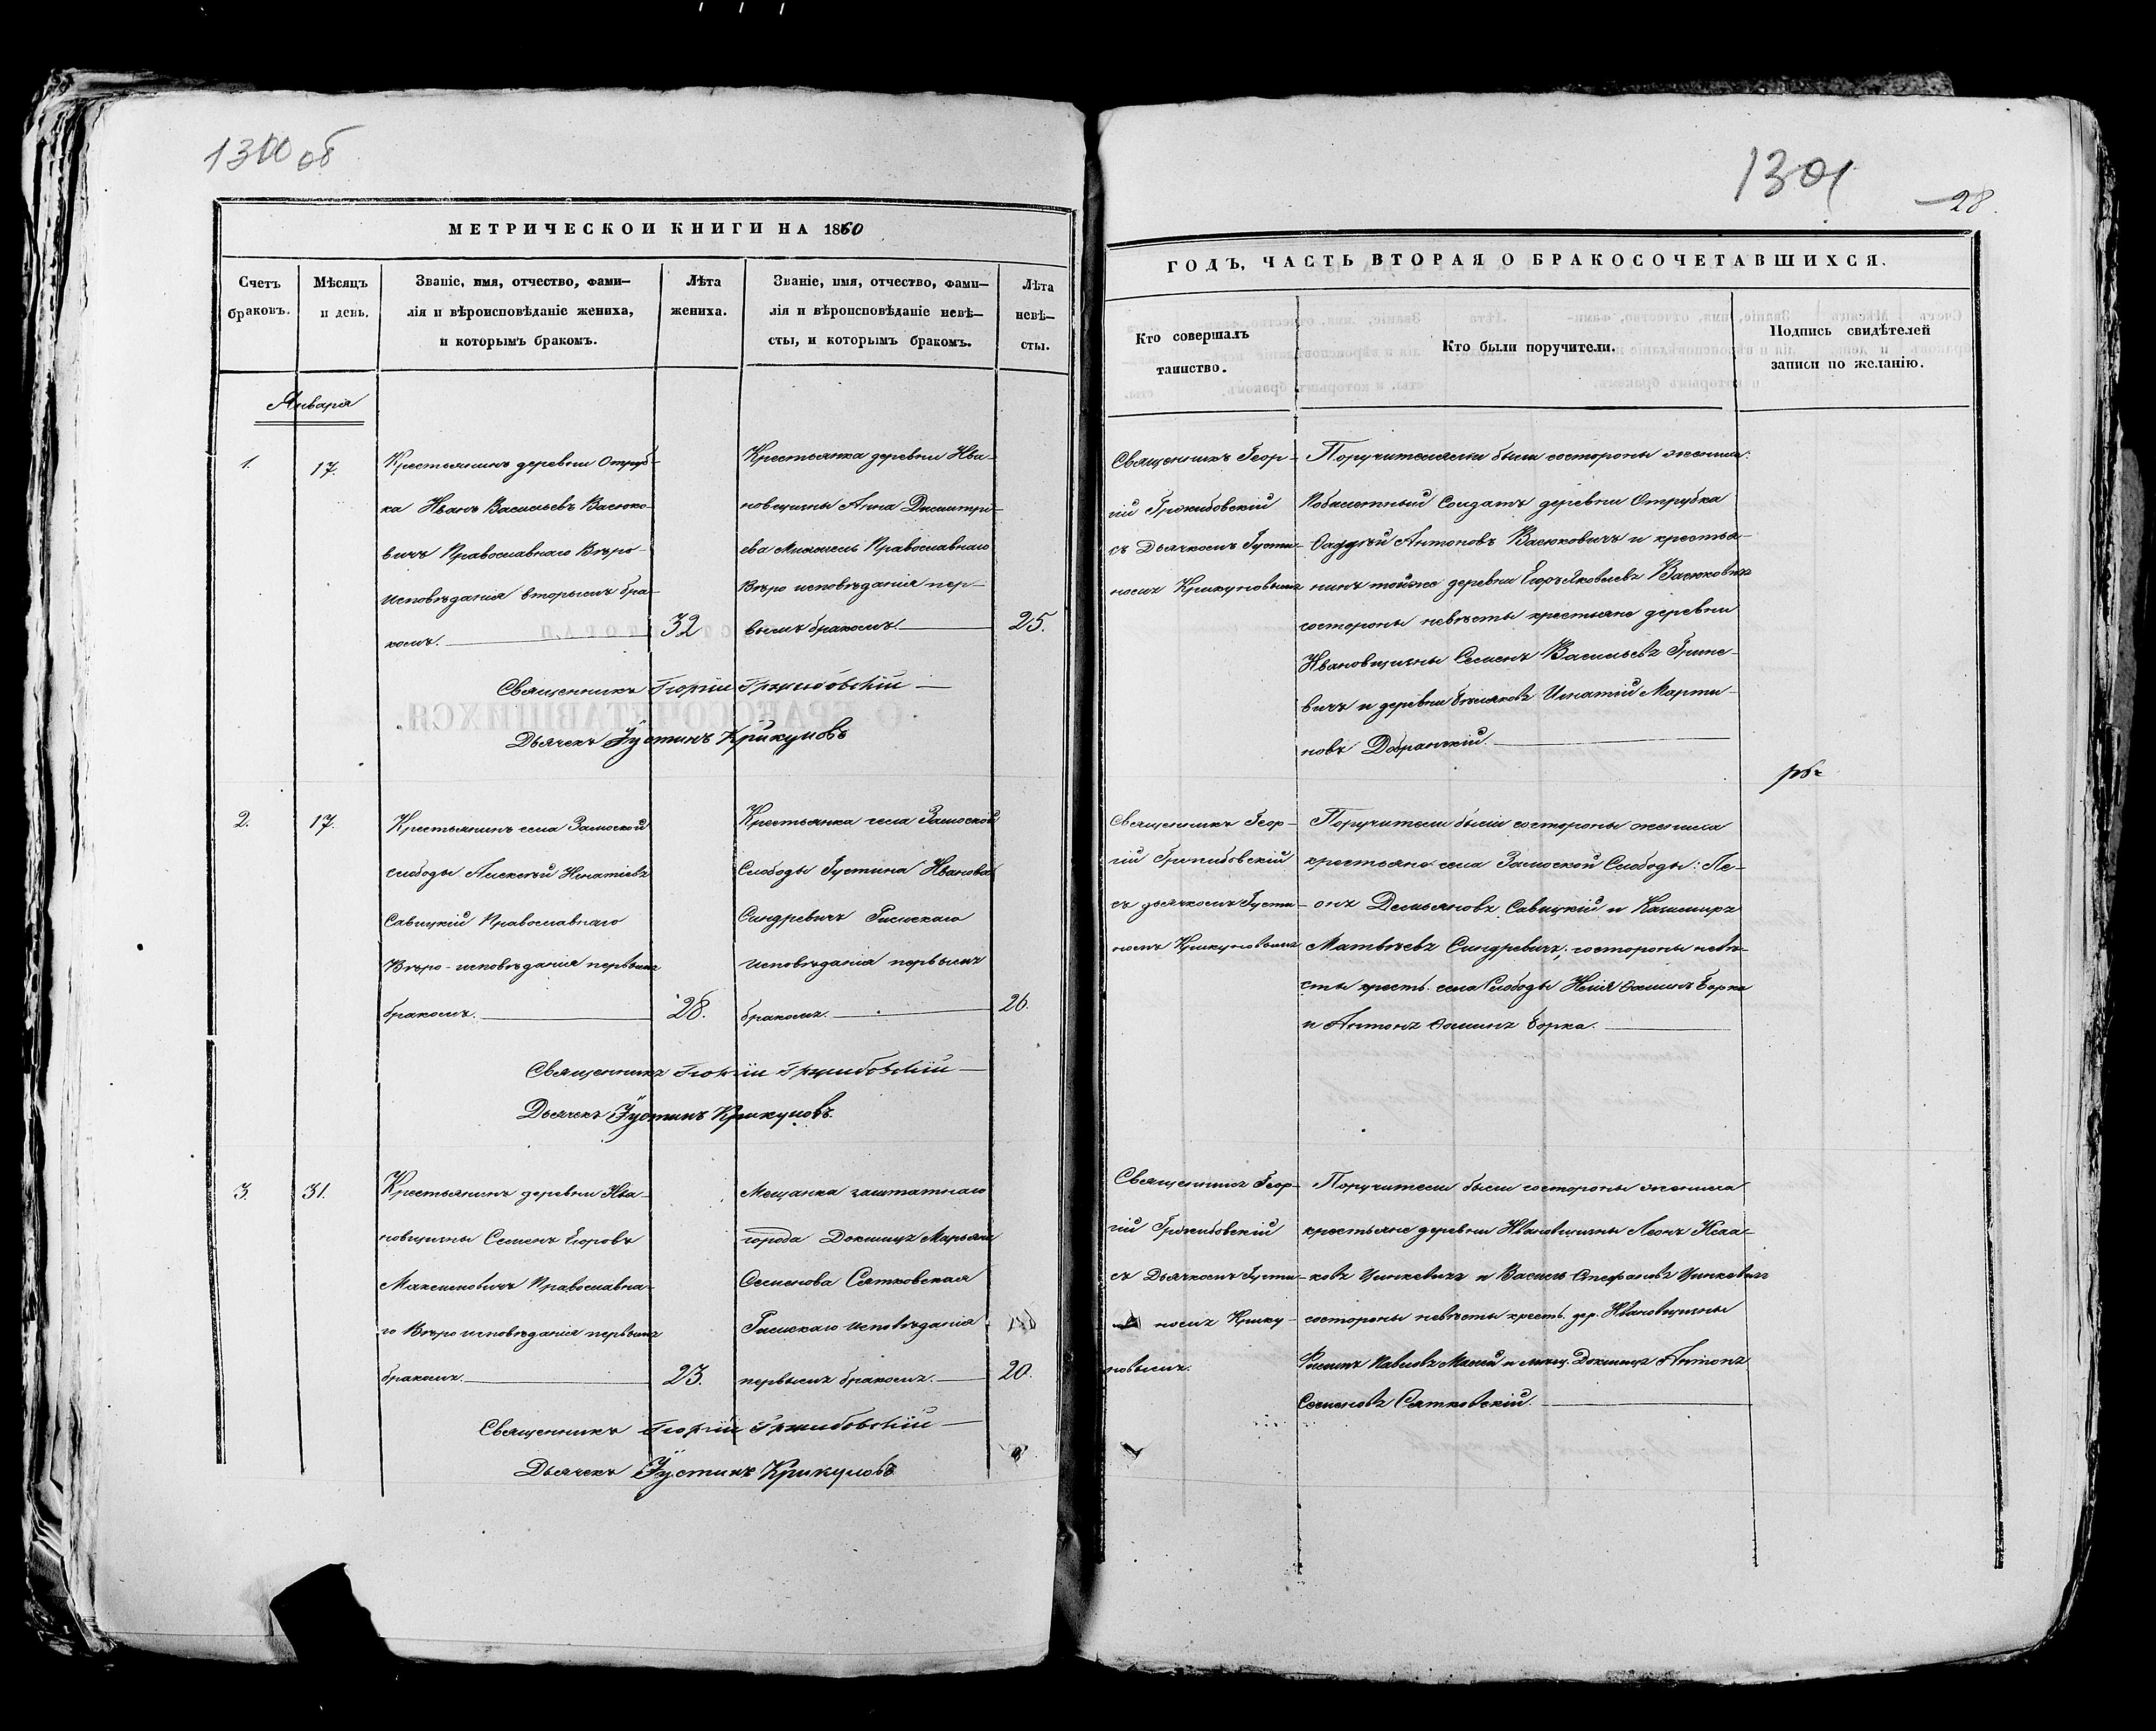 1300 об
МЕТРИЧЕСКОИ КНИГИ НА 1860
Счетъ браковъ.
Мѣсяцъ и день.
Званіе, имя, отчество, фами–
лія и вѣроисповѣданіе жениха,
и которымъ бракомъ.
Лѣта
жениха.
Званіе, имя, отчество, фами–
лія и вѣроисповѣданіе невѣ–
сты, и которымъ бракомъ.
Лѣта
невѣ–
сты.
Января
1.
17.
Крестьянинъ деревни Отруб-
ка Иванъ Васильевъ Васюко-
вичъ Православнаго Вѣро-
исповѣданія вторымъ бра-
комъ.
32
Крестьянка деревни Ива-
новщины Анна Димитрі-
ева Православнаго
Вѣро исповѣданія пер-
вымъ бракомъ.
25.
Священникъ Георгій Гржибовскій
Дьячекъ Іустинъ Крикуновъ
2.
17.
Крестьянинъ села Замоской
слободы Алексѣй Игнатіевъ
Савицкій Православнаго
Вѣро-исповѣданія первымъ
бракомъ.
28.
Крестьянка села Замоской
Слободы Іустина Иванова
Синдревичъ Римскаго
исповѣданія первымъ
бракомъ.
26.
Священникъ Георгій Гржибовскій
Дьячекъ Іустинъ Крикуновъ.
3.
31.
Крестьянинъ деревни Ива-
новщины Семенъ Егоровъ
Максимовичъ Православна-
го Вѣро исповѣданія первымъ
бракомъ.
23.
Мещанка заштатнаго
города Докшицъ Марьяна
Семенова Сятковская
Римскаго исповѣданія
первымъ бракомъ.
20.
Священникъ Георгій Гржибовскій
Дьячекъ Іустинъ Крикуновъ
1301
28.
ГОДЪ, ЧАСТЬ ВТОРАЯ О БРАКОСОЧЕТАВШИХСЯ.
Кто совершалъ
таинство.
Кто были поручители.
Подпись свидѣтелей
записи по желанію.
Священникъ Геор-
гій Гржибовскій
съ Дьячкомъ Іусти-
номъ Крикуновымъ
Поручителями были состороны жениха:
Солдатъ деревни Отрубка
Фаддѣй Антоновъ Васюковичъ и крестья-
нинъ тойже деревни Егоръ Яковлевъ Васюковичъ
состороны невѣсты крестьяне деревни
Ивановщины Семенъ Васильевъ Грине-
вичъ и деревни Игнатій Марти-
новъ
Священникъ Геор-
гій Гржибовскій
съ дьячкомъ Іусти-
номъ Крикуновымъ
Поручители были состороны жениха
крестьяне села Замоской Слободы: Ле-
онъ Демьяновъ Савицкій и Казимиръ
Матвѣевъ Синдревичъ; состороны невѣ-
сты кресть. села Слободы Илія Ѳоминъ Борка
и Антонъ Ѳоминъ Борка.
Священникъ Геор-
гій Гржибовскій
съ Дьячкомъ Іусти-
номъ Крику-
новымъ.
Поручители были состороны жениха
крестьяне деревни Ивановщины Леонъ Исаа-
ковъ и Василь Стефановъ
состороны невѣсты кресть. дер. Ивановщины
Павловъ и мещ. Докшицъ Антонъ
Семеновъ Сятковскій.